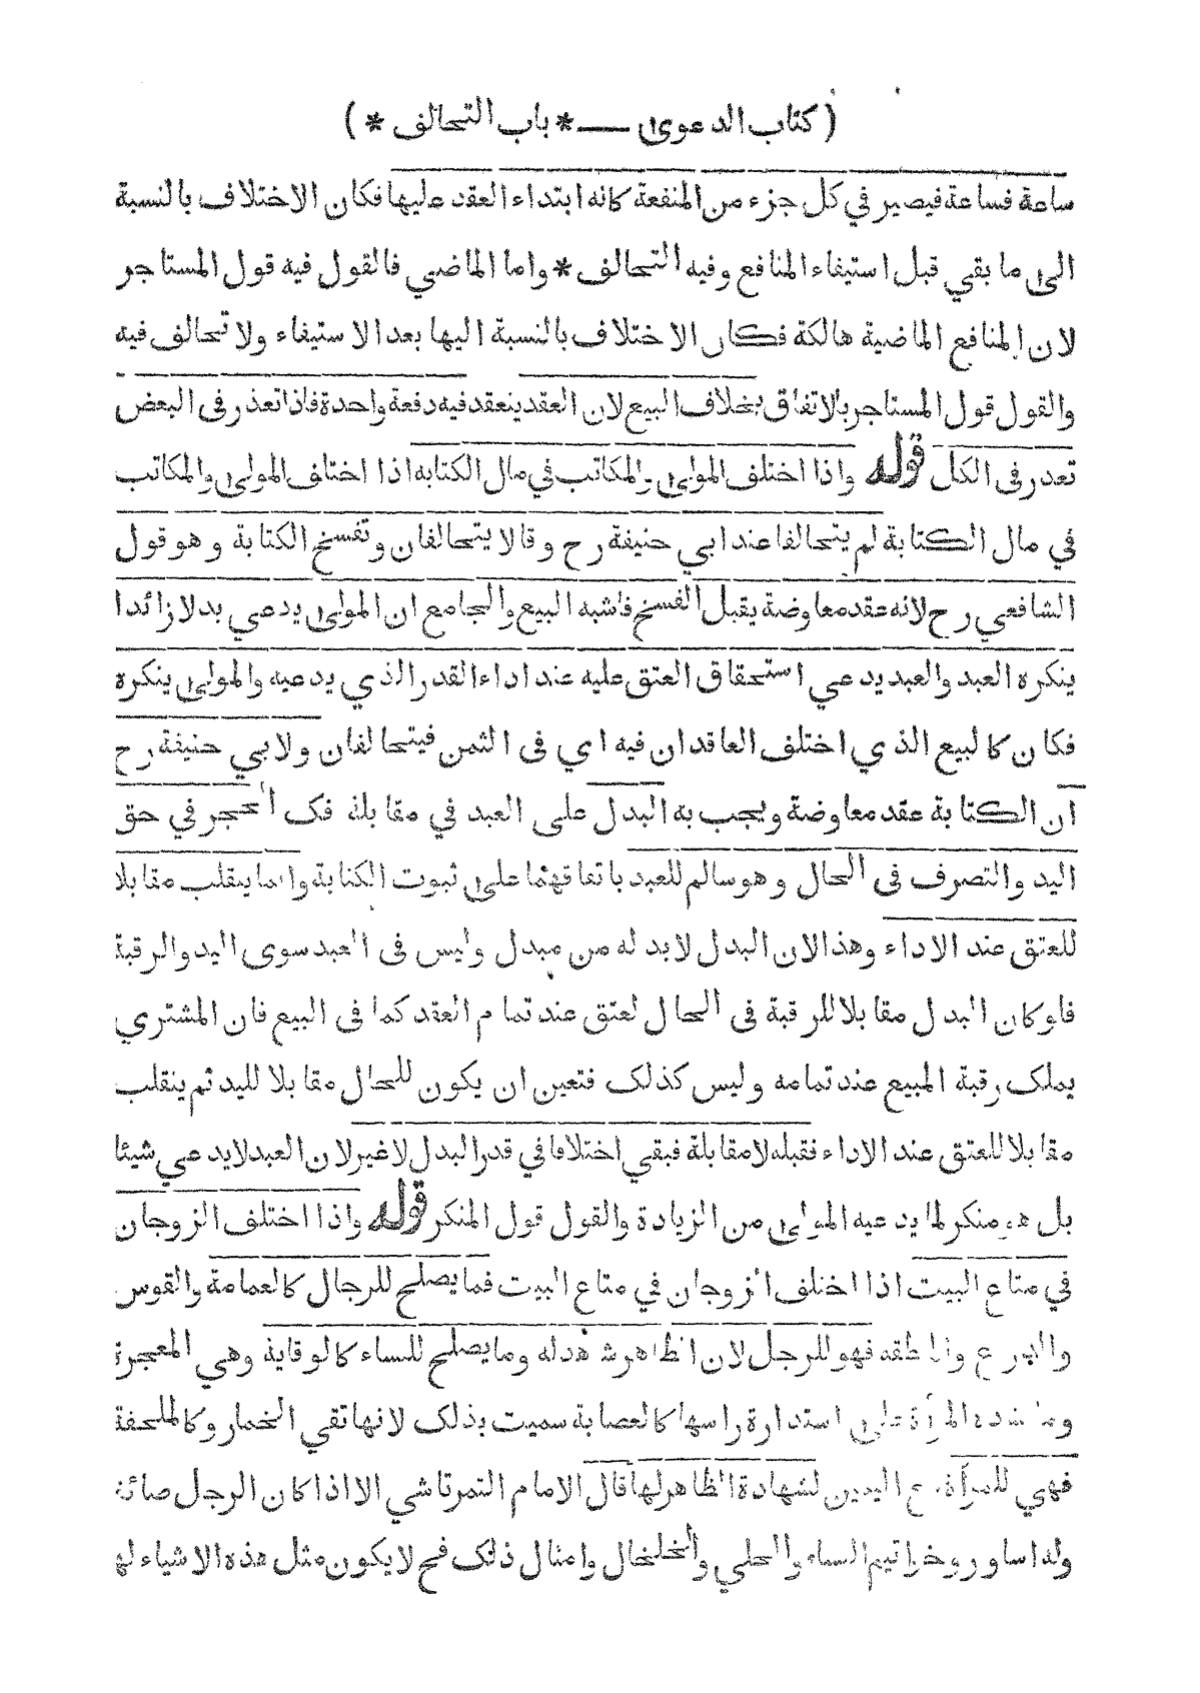 ( كتاب الدعوى — * باب التحالف * )
ساعة فساعة فيصير في كل جزء من المنفعة كانه ابتداء العقد عليها فكان الاختلاف بالنسبة
الى ما بقي قبل استيفاء المنافع وفيه التحالف * واما الماضي فالقول فيه قول المستاجر
لان المنافع الماضية هالكة فكان الاختلاف بالنسبة اليها بعد الاستيفاء ولا تحالف فيه
والقول قول المستاجر بالاتفاق بخلاف البيع لان العقد ينعقد فيه دفعة واحدة فاذا تعذر فى البعض
تعذر فى الكل قوله واذا اختلف المولى والمكاتب في مال الكتابه اذا اختلف المولى والمكاتب
في مال الكتابة لم يتحالفا عند ابي حنيفة رح وقالا يتحالفان وتفسخ الكتابة وهو قول
الشافعي رح لانه عقد معاوضة يقبل الفسخ فاشبه البيع والجامع ان المولى يدعي بدلا زائدا
ينكره العبد والعبد يدعي استحقاق العتق عليه عند اداء القدر الذي يدعيه والمولى ينكره
فكان كالبيع الذي اختلف العاقدان فيه اي فى الثمن فيتحالفان ولابي حنيفة رح
ان الكتابة عقد معاوضة ويجب به البدل على العبد في مقابلة فك الحجر في حق
اليد والتصرف فى الحال وهو سالم للعبد باتفاقهما على ثبوت الكتابة وانما ينقلب مقابلا
للعتق عند الاداء وهذا لان البدل لابد له من مبدل وليس فى العبد سوى اليد والرقبة
فلو كان البدل مقابلا للرقبة فى الحال لعتق عند تمام العقد كما فى البيع فان المشتري
يملك رقبة المبيع عند تمامه وليس كذلك فتعين ان يكون للحال مقابلا لليد ثم ينقلب
مقابلا للعتق عند الاداء فقبله لا مقابلة فبقي اختلافا في قدر البدل لا غير لان العبد لا يدعي شيئا
بل هو منكر لما يدعيه المولى من الزيادة والقول قول المنكر قوله واذا اختلف الزوجان
في متاع البيت اذا اختلف الزوجان في متاع البيت فما يصلح للرجال كالعمامة والقوس
والدرع والمنطقه فهو للرجل لان الظاهر شاهد له وما يصلح للنساء كالوقاية وهي المعجرة
وما تشده المرأة على استدارة راسها كالعصابة سميت بذلك لانها تقي الخمار وكالملحفة
فهي للمرأة مع اليمين لشهادة الظاهر لها قال الامام التمرتاشي الا اذا كان الرجل صائغا
وله اساور وخواتيم النساء والحلي والخلخال وامثال ذلك فح لا يكون مثل هذه الاشياء لها